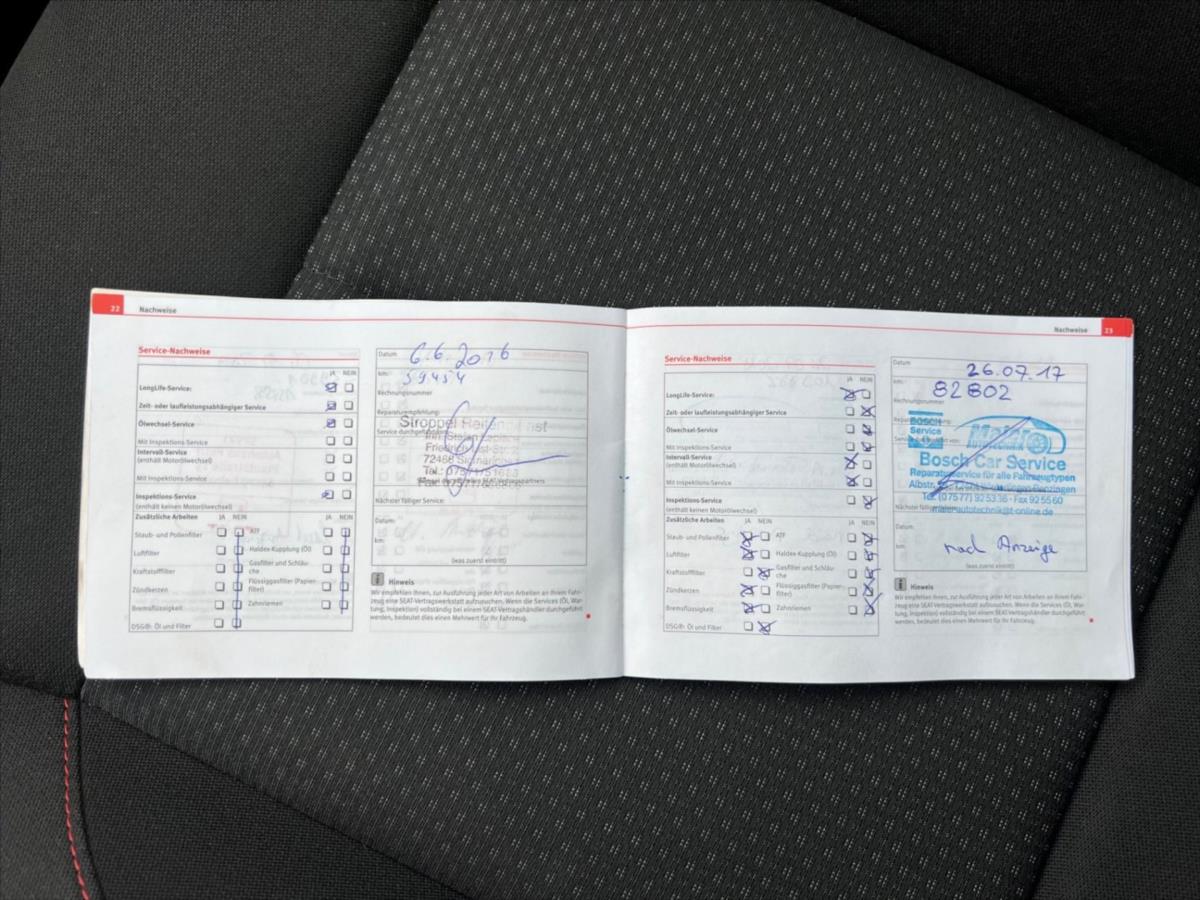 22 Nachweise
Service-Nachweise
JA NEIN
LongLife-Service:
Zeit- oder laufleistungsabhängiger Service
Ölwechsel-Service
Mit Inspektions-Service
Intervall-Service
(enthält Motorölwechsel)
Mit Inspektions-Service
Inspektions-Service
(enthält keinen Motorölwechsel)
Zusätzliche Arbeiten JA NEIN JA NEIN
Staub- und Pollenfilter ATF
Luftfilter Haldex-Kupplung (Öl)
Kraftstofffilter Gasfilter und Schläu-
che
Zündkerzen Flüssiggasfilter (Papier-
filter)
Bremsflüssigkeit Zahnriemen
DSG®: Öl und Filter
Datum: 6.6.2016
km: 59454
Rechnungsnummer
Reparaturempfehlung:
Stroppel
Service durchgeführt
Friedrich-Str. 2
Tel.:
Fax:
Nächster fälliger Service:
Datum:
km:
(was zuerst eintritt)
Hinweis
Wir empfehlen Ihnen, zur Ausführung jeder Art von Arbeiten an Ihrem Fahr-
zeug eine SEAT-Vertragswerkstatt aufzusuchen. Wenn die Services (Öl, War-
tung, Inspektion) vollständig bei einem SEAT-Vertragshändler durchgeführt
werden, bedeutet dies einen Mehrwert für Ihr Fahrzeug.
Nachweise 23
Service-Nachweise
JA NEIN
LongLife-Service:
Zeit- oder laufleistungsabhängiger Service
Ölwechsel-Service
Mit Inspektions-Service
Intervall-Service
(enthält Motorölwechsel)
Mit Inspektions-Service
Inspektions-Service
(enthält keinen Motorölwechsel)
Zusätzliche Arbeiten JA NEIN JA NEIN
Staub- und Pollenfilter ATF
Luftfilter Haldex-Kupplung (Öl)
Kraftstofffilter Gasfilter und Schläu-
che
Zündkerzen Flüssiggasfilter (Papier-
filter)
Bremsflüssigkeit Zahnriemen
DSG®: Öl und Filter
Datum: 26.07.17
km: 82802
Rechnungsnummer
BOSCH
Service
Bosch Car Service
Reparaturservice für alle Fahrzeugtypen
Tel. (07577) 92 53 36 · Fax 92 55 60
Nächster fälliger
Datum:
km: nach Anzeige
(was zuerst eintritt)
Hinweis
Wir empfehlen Ihnen, zur Ausführung jeder Art von Arbeiten an Ihrem Fahr-
zeug eine SEAT-Vertragswerkstatt aufzusuchen. Wenn die Services (Öl, War-
tung, Inspektion) vollständig bei einem SEAT-Vertragshändler durchgeführt
werden, bedeutet dies einen Mehrwert für Ihr Fahrzeug.